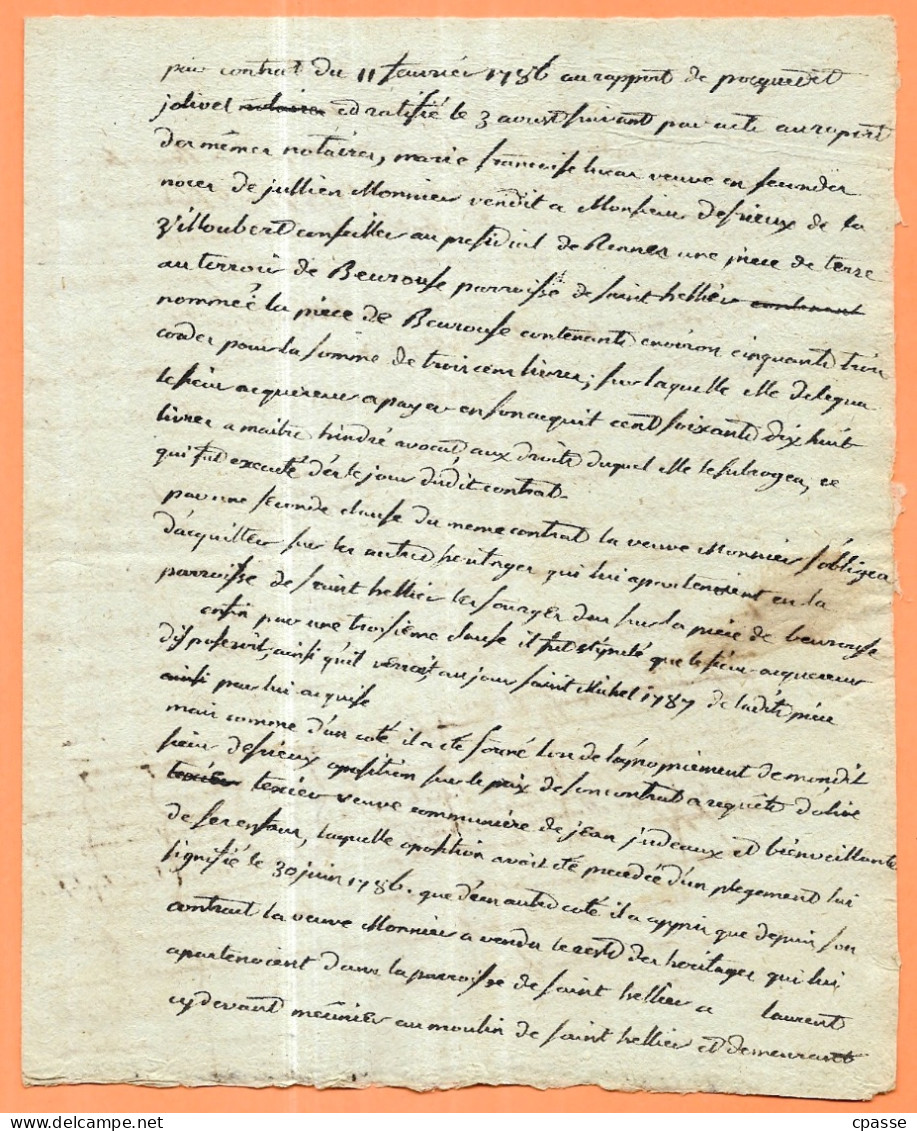 par contrat du 11 fevrier 1786 au rapport de pocquet et
jolivet notaires et ratifié le 3 aoust suivant par acte au raport
des mêmes notaires, marie francoise lucas veuve en secondes
noces de jullien Monnier vendit a Monsieur desrieux de la
Villoubert conseiller au presidial de Rennes une piece de terre
au terroir de Beurouse parroisse de saint hellier contenant
nommée la piece de Beurouse contenante environ cinquante trois
cordes pour la somme de trois cent livres; sur laquelle elle delegua
le sieur acquereur a payer en son acquit cent soixante dix huit
livres a maitre hindré avocat, aux droits duquel elle le subrogea, ce
qui fut executé dés le jour dudit contrat.
par une seconde clause du meme contrat la veuve Monnier s'obligea
d'acquitter sur les autres heritages qui lui apartenoient en la
parroisse de saint hellier les charges dues sur la piece de beurouse
enfin par une troisieme clause il fut stipulé que le sieur acquereur
disposeroit, ainsi qu'il verroit, au jour saint Michel 1787 de ladite piece
ainsi par lui acquise
mais comme d'un coté il a été formé lors de l'apropriement de mondit
sieur desrieux oposition sur le prix de son contrat a requête d'olive
texier texier veuve communiere de jean judeaux et bienveillante
de ses enfans, laquelle oposition avoit été precedée d'un plegement lui
signifié le 30 juin 1786. que d'un autre coté il a appris que depuis son
contrat la veuve Monnier a vendu le reste des heritages qui lui
apartenoient dans la parroisse de saint hellier a laurent
cy devant meûnier au moulin de saint hellier et demeurant
© cpasse